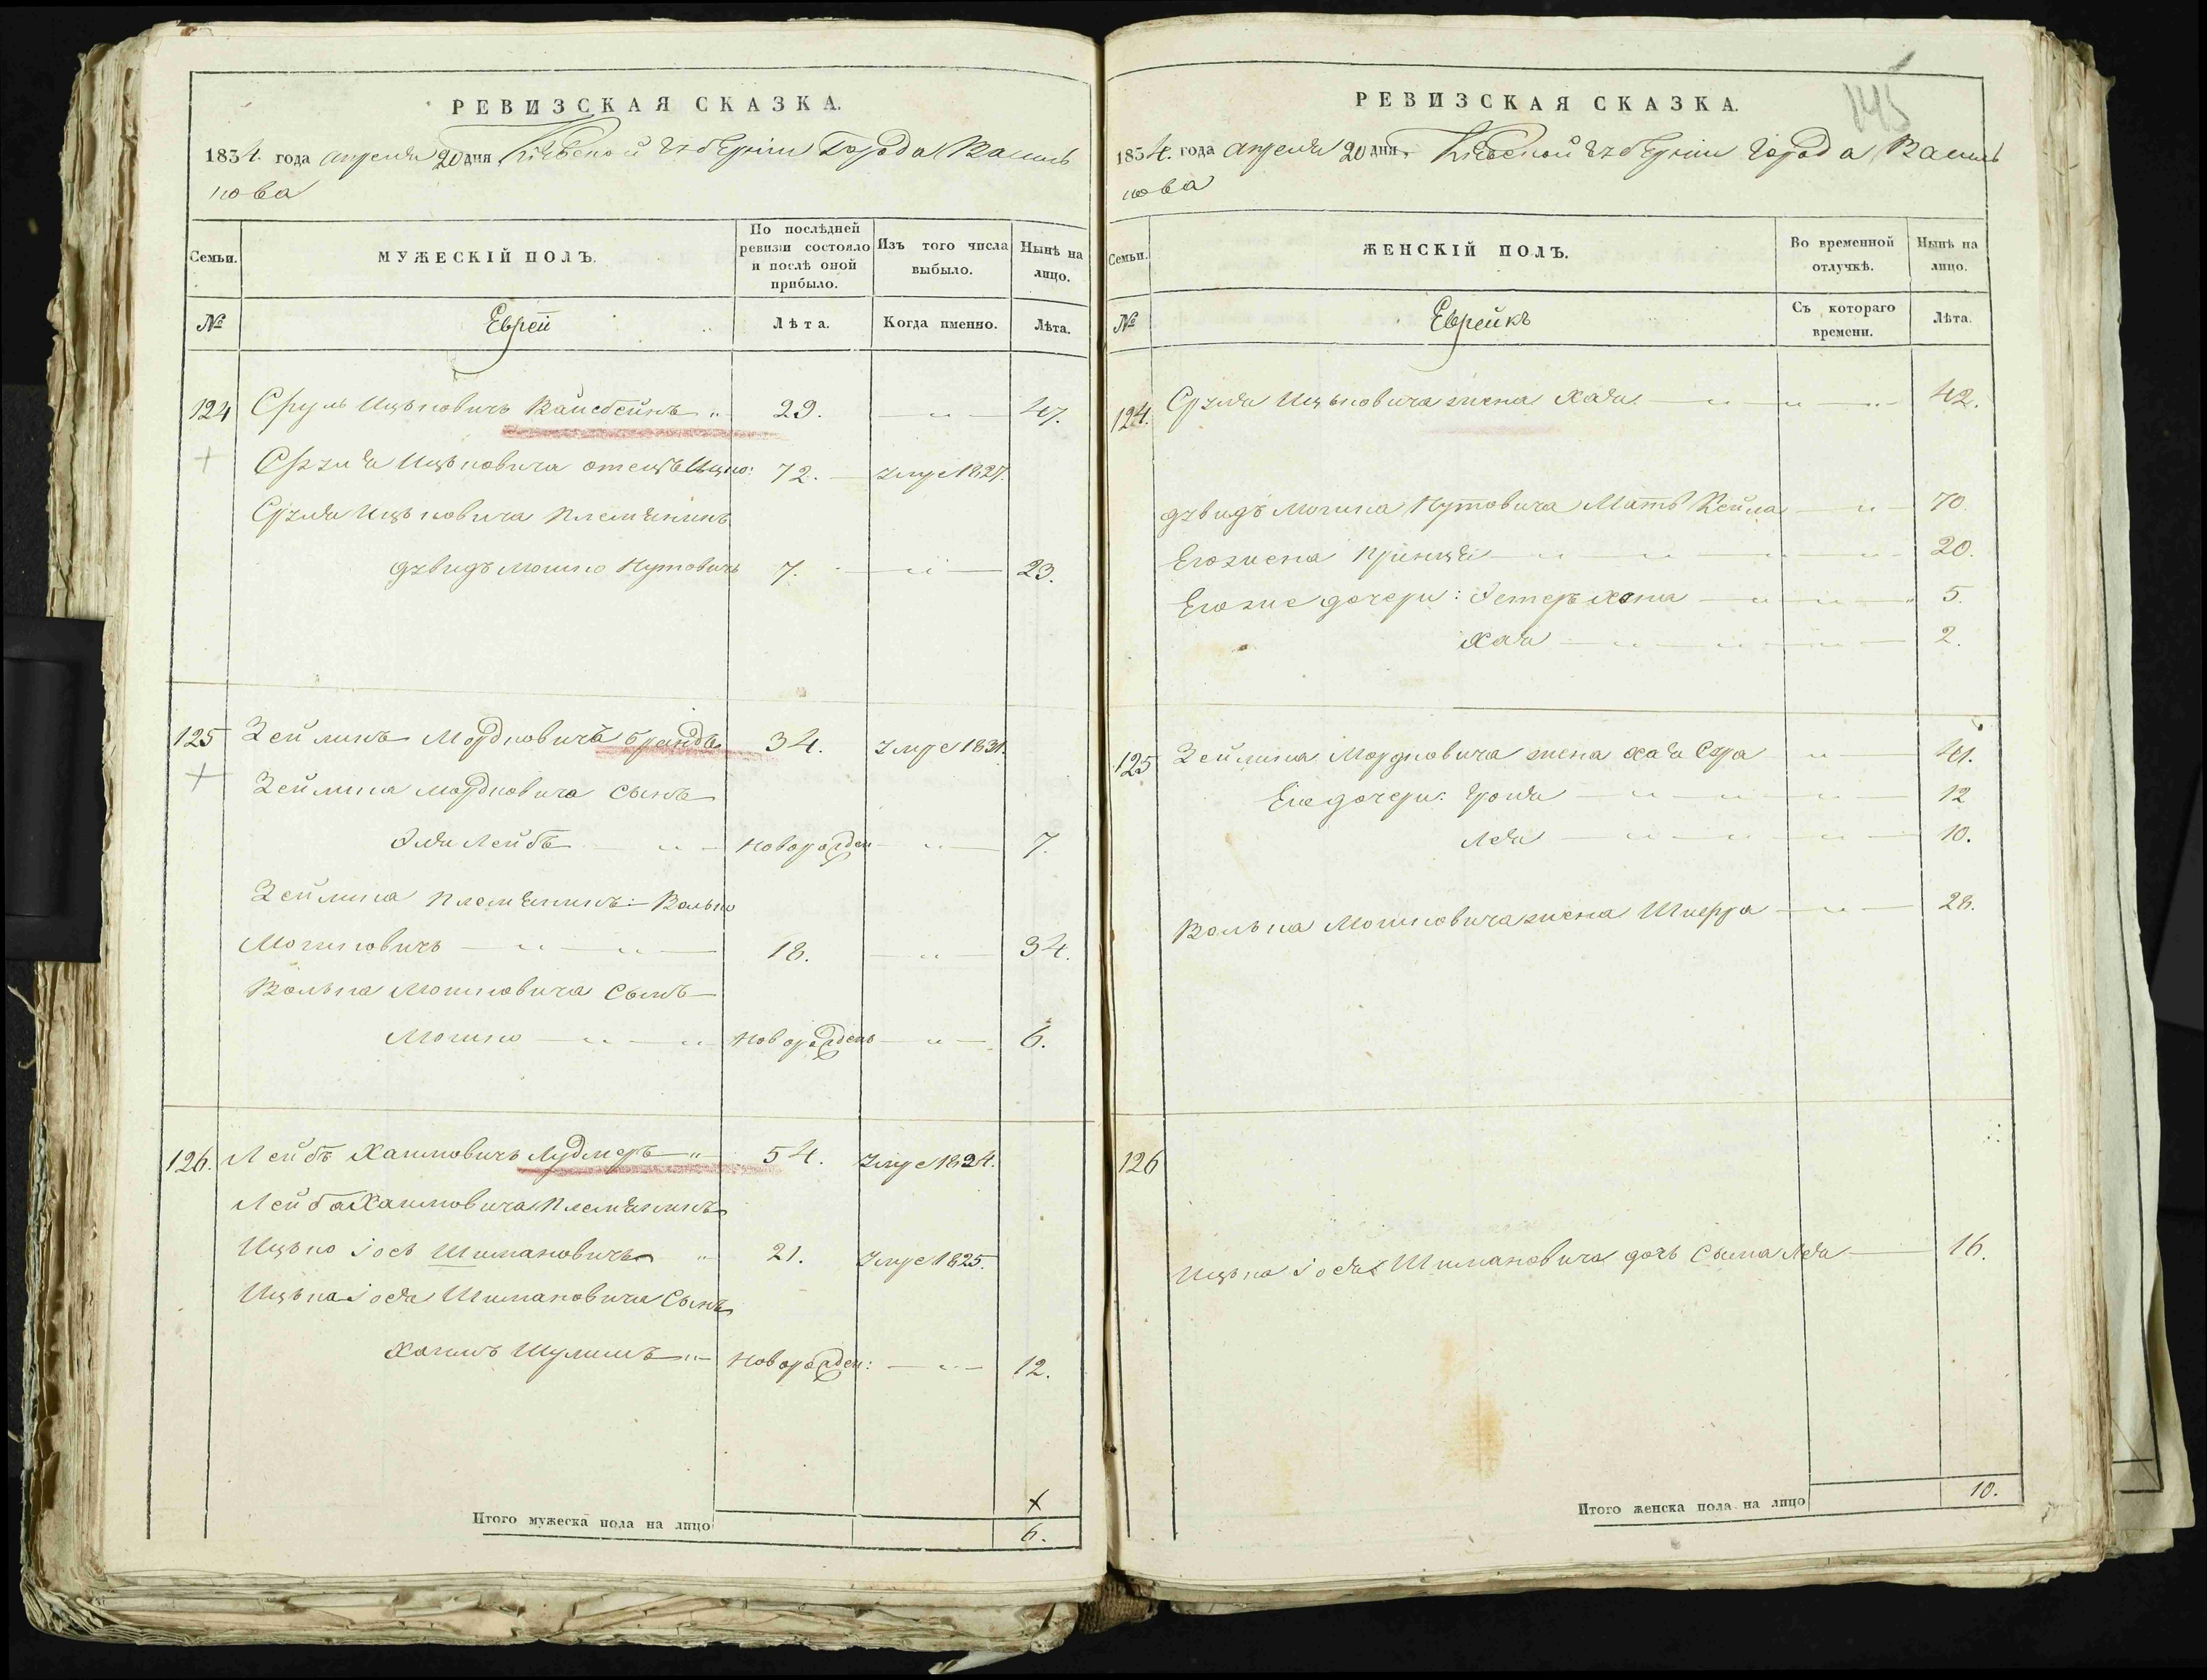 РЕВИЗСКАЯ СКАЗКА.
1834. года апреля 20 дня Кіевской Губерніи Города Василь
кова
Семьи.
МУЖЕСКІЙ ПОЛЪ.
По послѣдней ревизіи состояло и послѣ оной прибыло.
Изъ того числа выбыло.
Нынѣ на лицо.
№
Еврей
Лѣта.
Когда именно.
Лѣта.
124 Сруль Ицьковичъ Вайсбейнъ 29. 47.
Сруля Ицьковича отецъ Ицко: 72. Умре 1827.
Сруля Ицьковича племянникъ
Дувидъ Мошко Нутовичъ 7. 23.
125 Зейликъ Мордковичъ Брандъ 34. Умре 1831.
Зейлика Мордковича сынъ
Эля Лейбъ новорожден 7.
Зейлика племянникъ:Волько
Мошковичъ 18. 34.
Волька Мошковича сынъ
Мошко новорожденъ 6.
126. Лейбъ Хаимовичъ Лудмеръ 54. Умре 1824.
Лейба Хаимовича племянникъ
Ицько Іось Шимановичъ 21. Умре 1825.
Ицька Іося Шимановича сынъ
Хаимъ Шулимъ новорожден: 12.
х
Итого мужеска пола на лицо 6.
145
РЕВИЗСКАЯ СКАЗКА.
1834. года апреля 20 дня. Кіевской Губерніи Города Василь
кова
Семьи.
ЖЕНСКІЙ ПОЛЪ.
Во временной отлучкѣ.
Нынѣ на лицо.
№
Еврейкъ
Съ котораго времени.
Лѣта.
124. Сруля Ицьковича жена Хая 42.
Дувидъ Мошка Нутовича мать Кейла 70.
Его жена 20.
Его же дочери: Эстеръ Хана 5.
Хая 2.
125 Зейлика Мордковича жена Хая Сура 41.
Его дочери: 12
Лея 10.
Волька Мошковича жена Шифра 28.
126
Ицька Іося Шимановича дочь Сима Лея 16.
Итого женска пола на лицо 10.